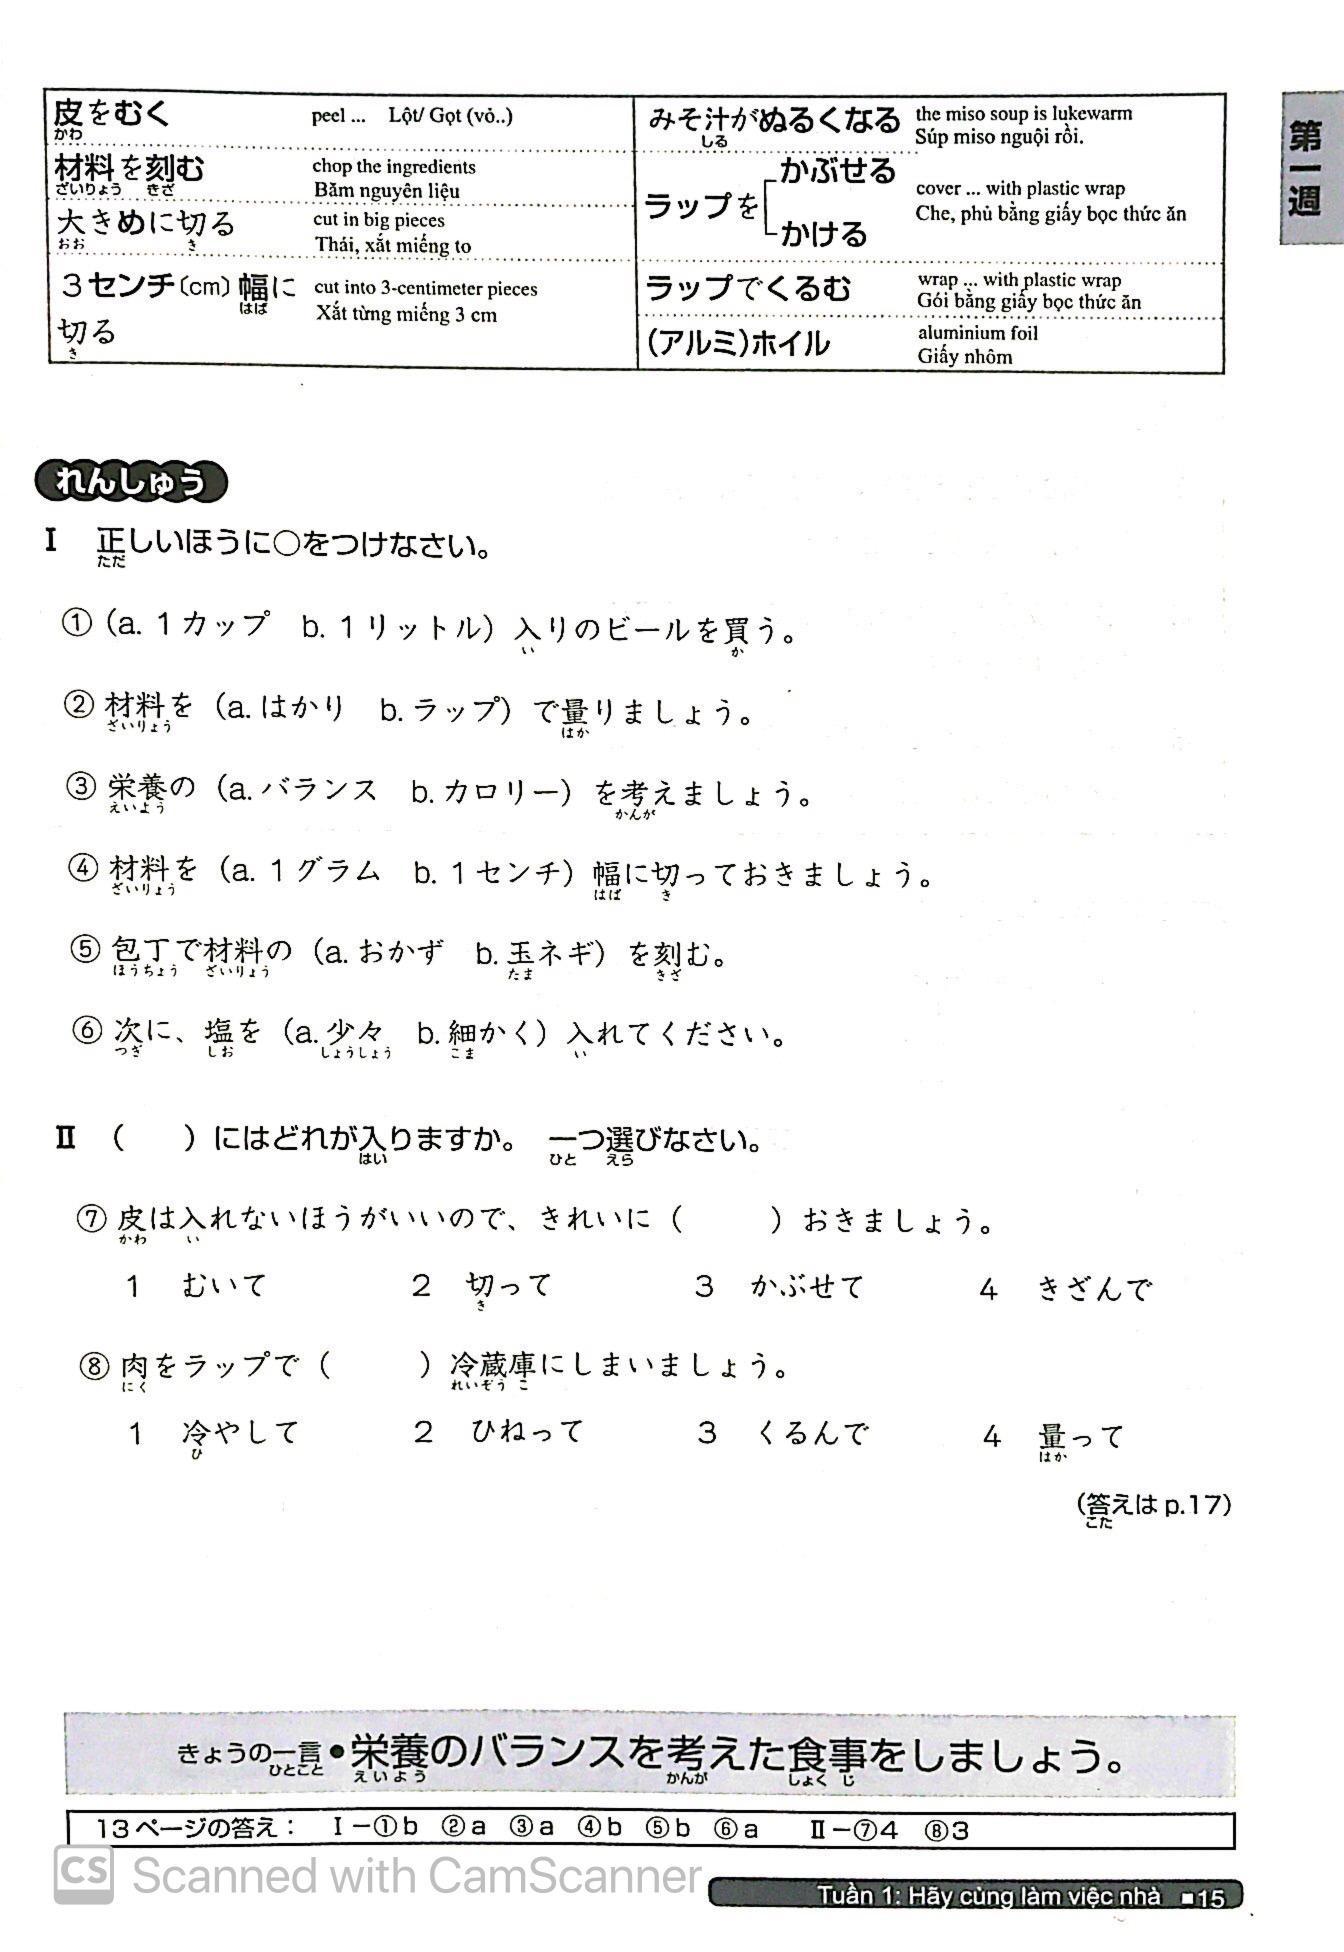 皮をむく peel ... Lột/ Gọt (vỏ..)
かわ
材料を刻む chop the ingredients
ざいりょう きざ Băm nguyên liệu
大きめに切る cut in big pieces
おお き Thái, xắt miếng to
3センチ(cm)幅に cut into 3-centimeter pieces
はば Xắt từng miếng 3 cm
切る
き
みそ汁がぬるくなる the miso soup is lukewarm
しる Súp miso nguội rồi.
ラップを かぶせる
かける
cover ... with plastic wrap
Che, phủ bằng giấy bọc thức ăn
ラップでくるむ wrap ... with plastic wrap
Gói bằng giấy bọc thức ăn
(アルミ)ホイル aluminium foil
Giấy nhôm
第一週
れんしゅう
I 正しいほうに○をつけなさい。
ただ
① (a. 1カップ b. 1リットル) 入りのビールを買う。
い か
② 材料を (a. はかり b. ラップ) で量りましょう。
ざいりょう はか
③ 栄養の (a. バランス b. カロリー) を考えましょう。
えいよう かんが
④ 材料を (a. 1グラム b. 1センチ) 幅に切っておきましょう。
ざいりょう はば き
⑤ 包丁で材料の (a. おかず b. 玉ネギ) を刻む。
ほうちょう ざいりょう たま きざ
⑥ 次に、塩を (a. 少々 b. 細かく) 入れてください。
つぎ しお しょうしょう こま い
II ( ) にはどれが入りますか。 一つ選びなさい。
はい ひと えら
⑦ 皮は入れないほうがいいので、きれいに ( ) おきましょう。
かわ い
1 むいて 2 切って 3 かぶせて 4 きざんで
き
⑧ 肉をラップで ( ) 冷蔵庫にしまいましょう。
にく れいぞうこ
1 冷やして 2 ひねって 3 くるんで 4 量って
ひ はか
(答えは p.17)
こた
きょうの一言●栄養のバランスを考えた食事をしましょう。
ひとこと えいよう かんが しょくじ
13ページの答え: I－①b ②a ③a ④b ⑤b ⑥a II－⑦4 ⑧3
CS Scanned with CamScanner
Tuần 1: Hãy cùng làm việc nhà ■15